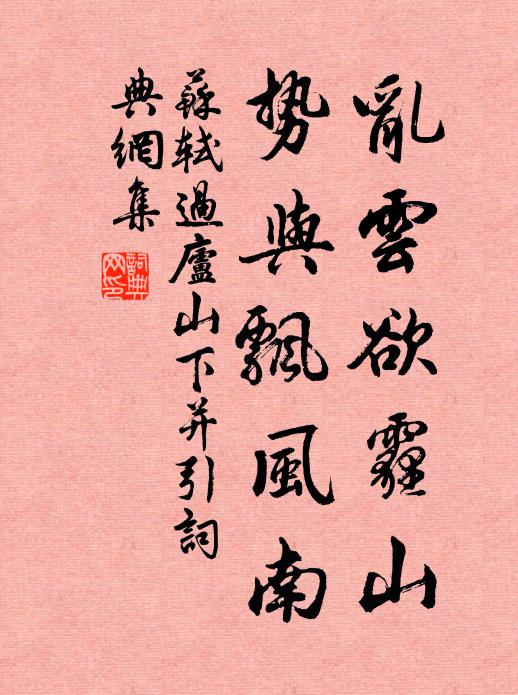 亂雲欲霾山
势與飄風南
蘇軾過廬山下并引詞
典網集
詞典
网印